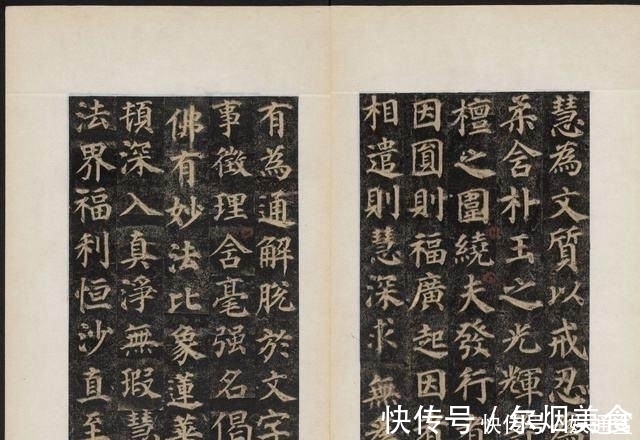 慧為文質以戒忍
柔含朴玉之光輝
檀之圍繞夫發行
因圓則福廣起因
相遣則慧深求無
有為通解脫於文字
事徵理含毫強名偈
佛有妙法比象蓮華
頓深入真淨無瑕慧
法界福利恒沙直至
快传号 / 烟美食
快传号